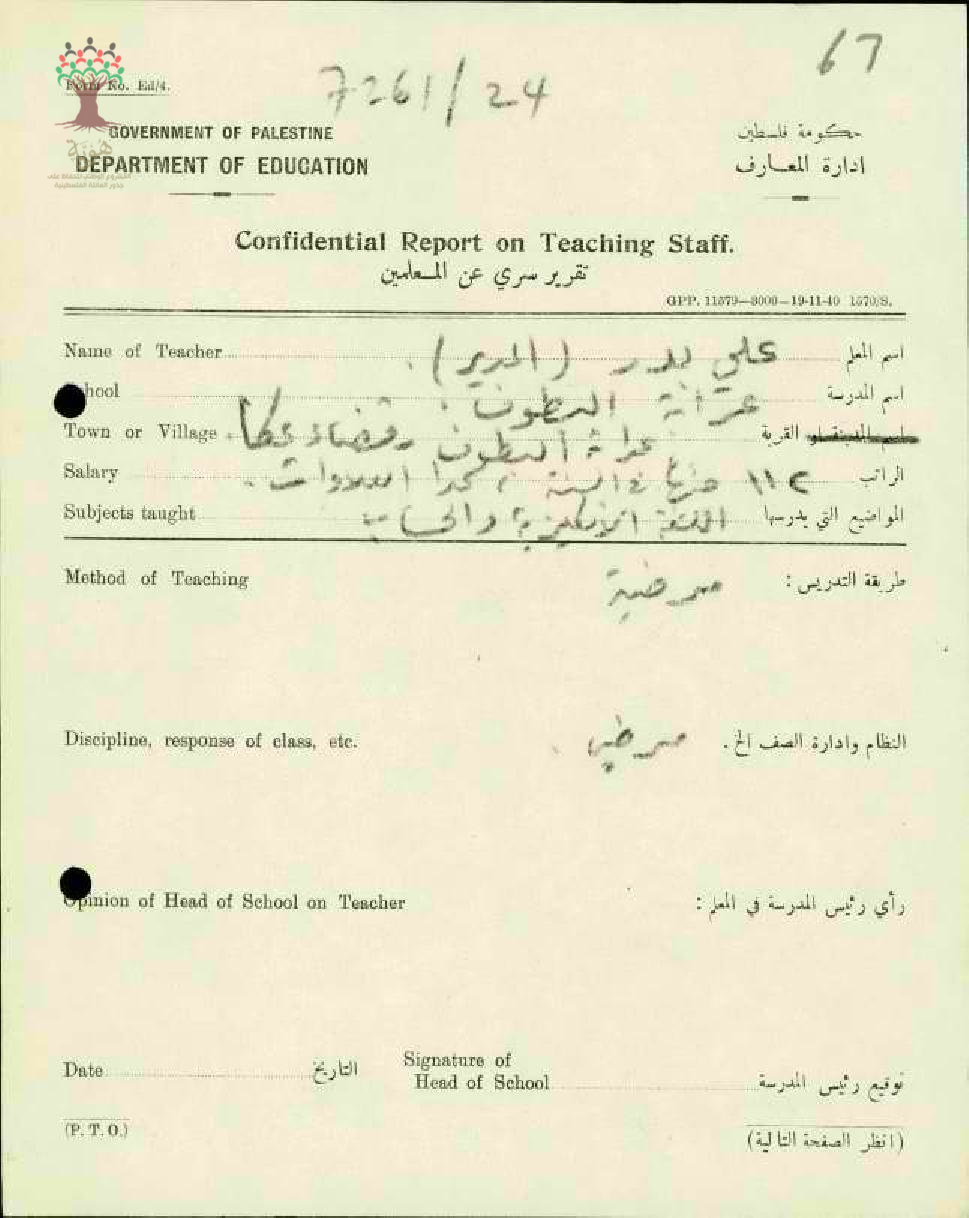 67
7261/24
Form No. Ed/4.
هوية
المشروع الوطني للحفاظ على
جذور العائلة الفلسطينية
GOVERNMENT OF PALESTINE
حكومة فلسطين
DEPARTMENT OF EDUCATION
ادارة المعارف
Confidential Report on Teaching Staff.
تقرير سري عن المعلمين
GPP. 11579—8000—19-11-40 1570/S.
Name of Teacher علي بدر (المدير). اسم المعلم
School عرّابة البطوف. اسم المدرسة
Town or Village عرابة البطوف قضاء عكا. القرية
Salary ١١٢ جنيها في السنة، عدا العلاوات. الراتب
Subjects taught اللغة الانكليزية والحساب المواضيع التي يدرسها
Method of Teaching مرضية طريقة التدريس:
Discipline, response of class, etc. مرضي. النظام وادارة الصف الخ.
Opinion of Head of School on Teacher رأي رئيس المدرسة في المعلم:
Date التاريخ Signature of
Head of School توقيع رئيس المدرسة
(P. T. O.) (انظر الصفحة التالية)